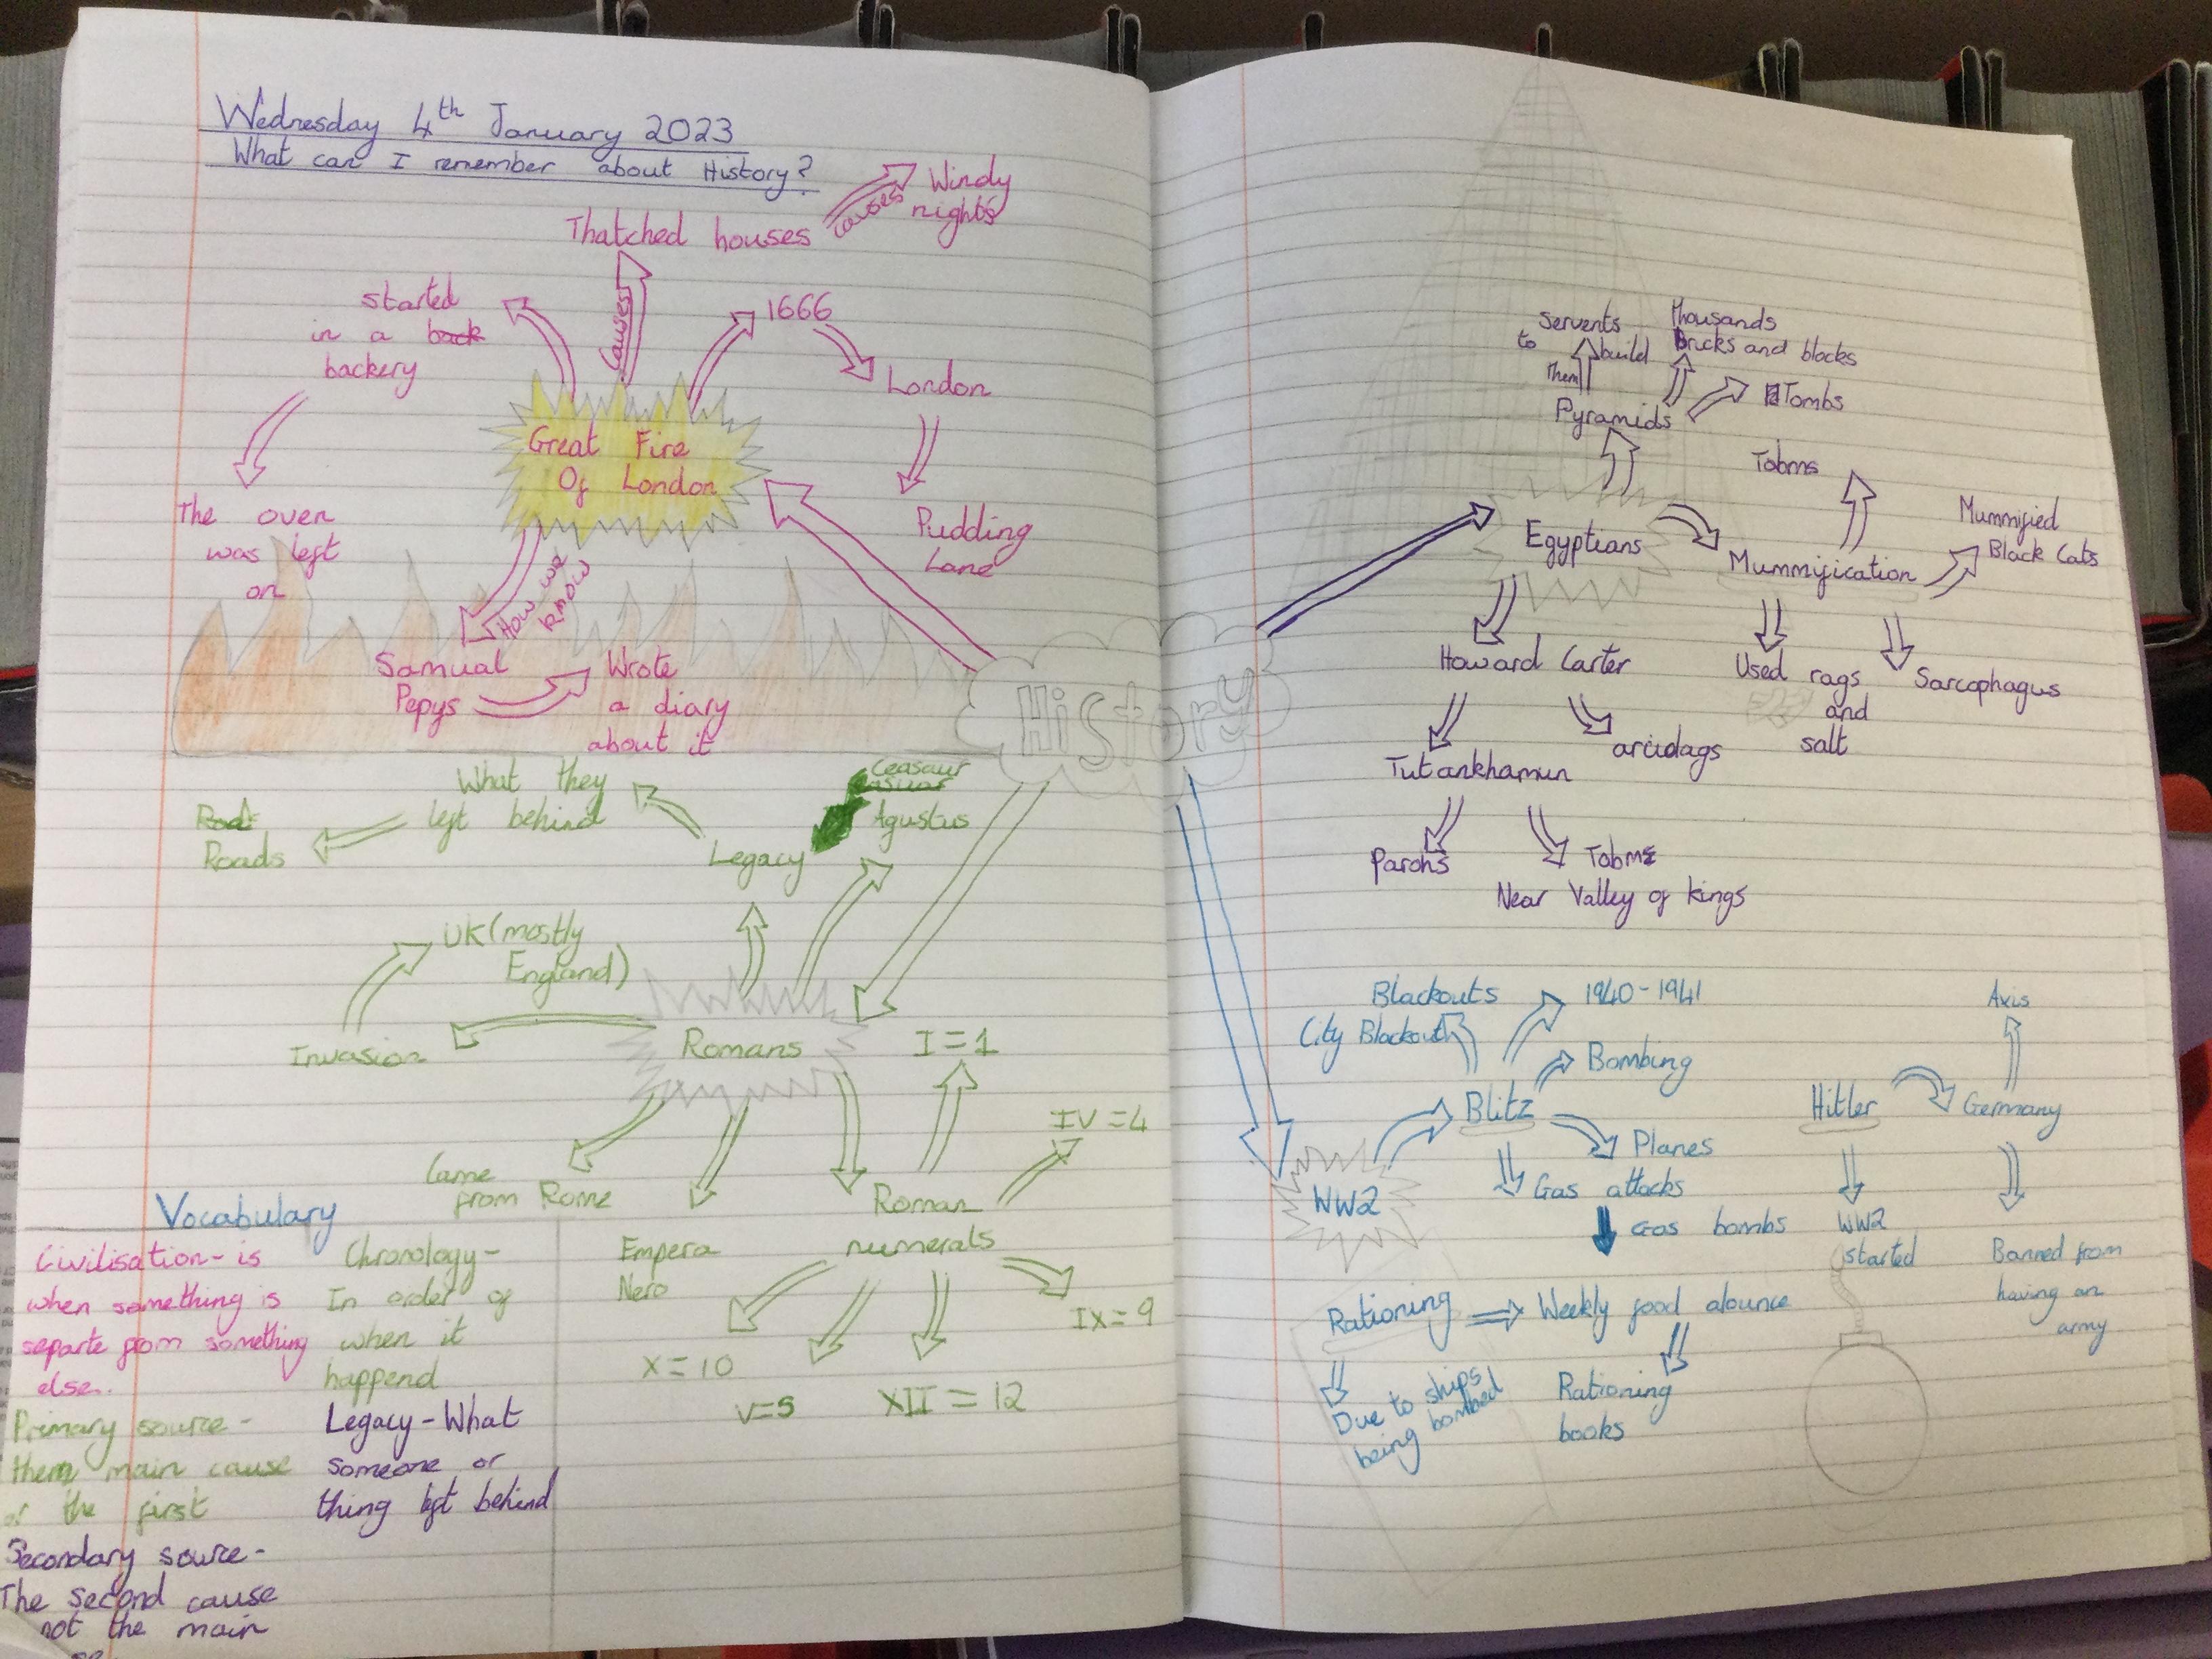 Wednesday 4th January 2023
What can I remember about History?
Thatched houses
causes
Windy
nights
started
in a back
backery
causes
1666
London
Great Fire
Of London
The oven
was left
on
Pudding
Lane
How we
know
Samual
Pepys
Wrote
a diary
about it
History
What they
left behind
Roads
Ceasaur
Agustus
Legacy
UK (mostly
England)
Invasion
Romans
I = 1
IV = 4
Came
from Rome
Roman
numerals
Empera
Nero
IX = 9
X = 10
V = 5
XII = 12
Vocabulary
Civilisation - is
when something is
separte from something
else.
Primary source -
them main cause
or the first
Secondary source -
The second cause
not the main
Chronology -
In order of
when it
happend
Legacy - What
someone or
thing left behind
Servents
to build
Them
Thousands
Bricks and blocks
Pyramids
Tombs
Tobms
Egyptians
Mummification
Mummified
Black Cats
Howard Carter
Used rags
and
salt
Sarcophagus
Tutankhamun
Parohs
Tobms
Near Valley of kings
Blackouts
City Blackout
1940-1941
Bombing
Axis
Blitz
Hitler
Germany
Planes
WW2
Gas attacks
Gas bombs
WW2
started
Banned from
having an
army
Rationing
Weekly food alounce
Due to ships
being bombed
Rationing
books